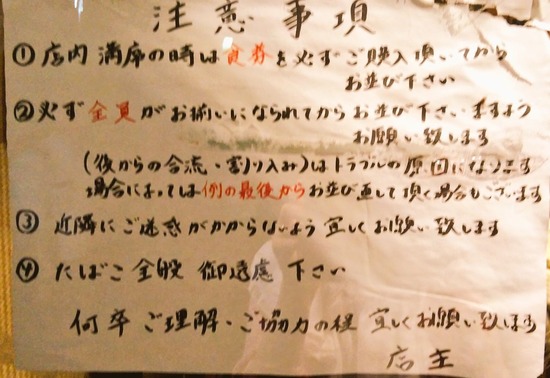 注意事項
① 店内 満席の時は食券を必ずご購入頂いてから
お並び下さい
② 必ず全員がお揃いになられてからお並び下さいますよう
お願い致します
(後からの合流・割り込み)はトラブルの原因になります
場合によっては例の最後からお並び直して頂く場合もございます
③ 近隣にご迷惑がかからないよう宜しくお願い致します
④ たばこ全般 御遠慮下さい
何卒ご理解・ご協力の程 宜しくお願い致します
店主